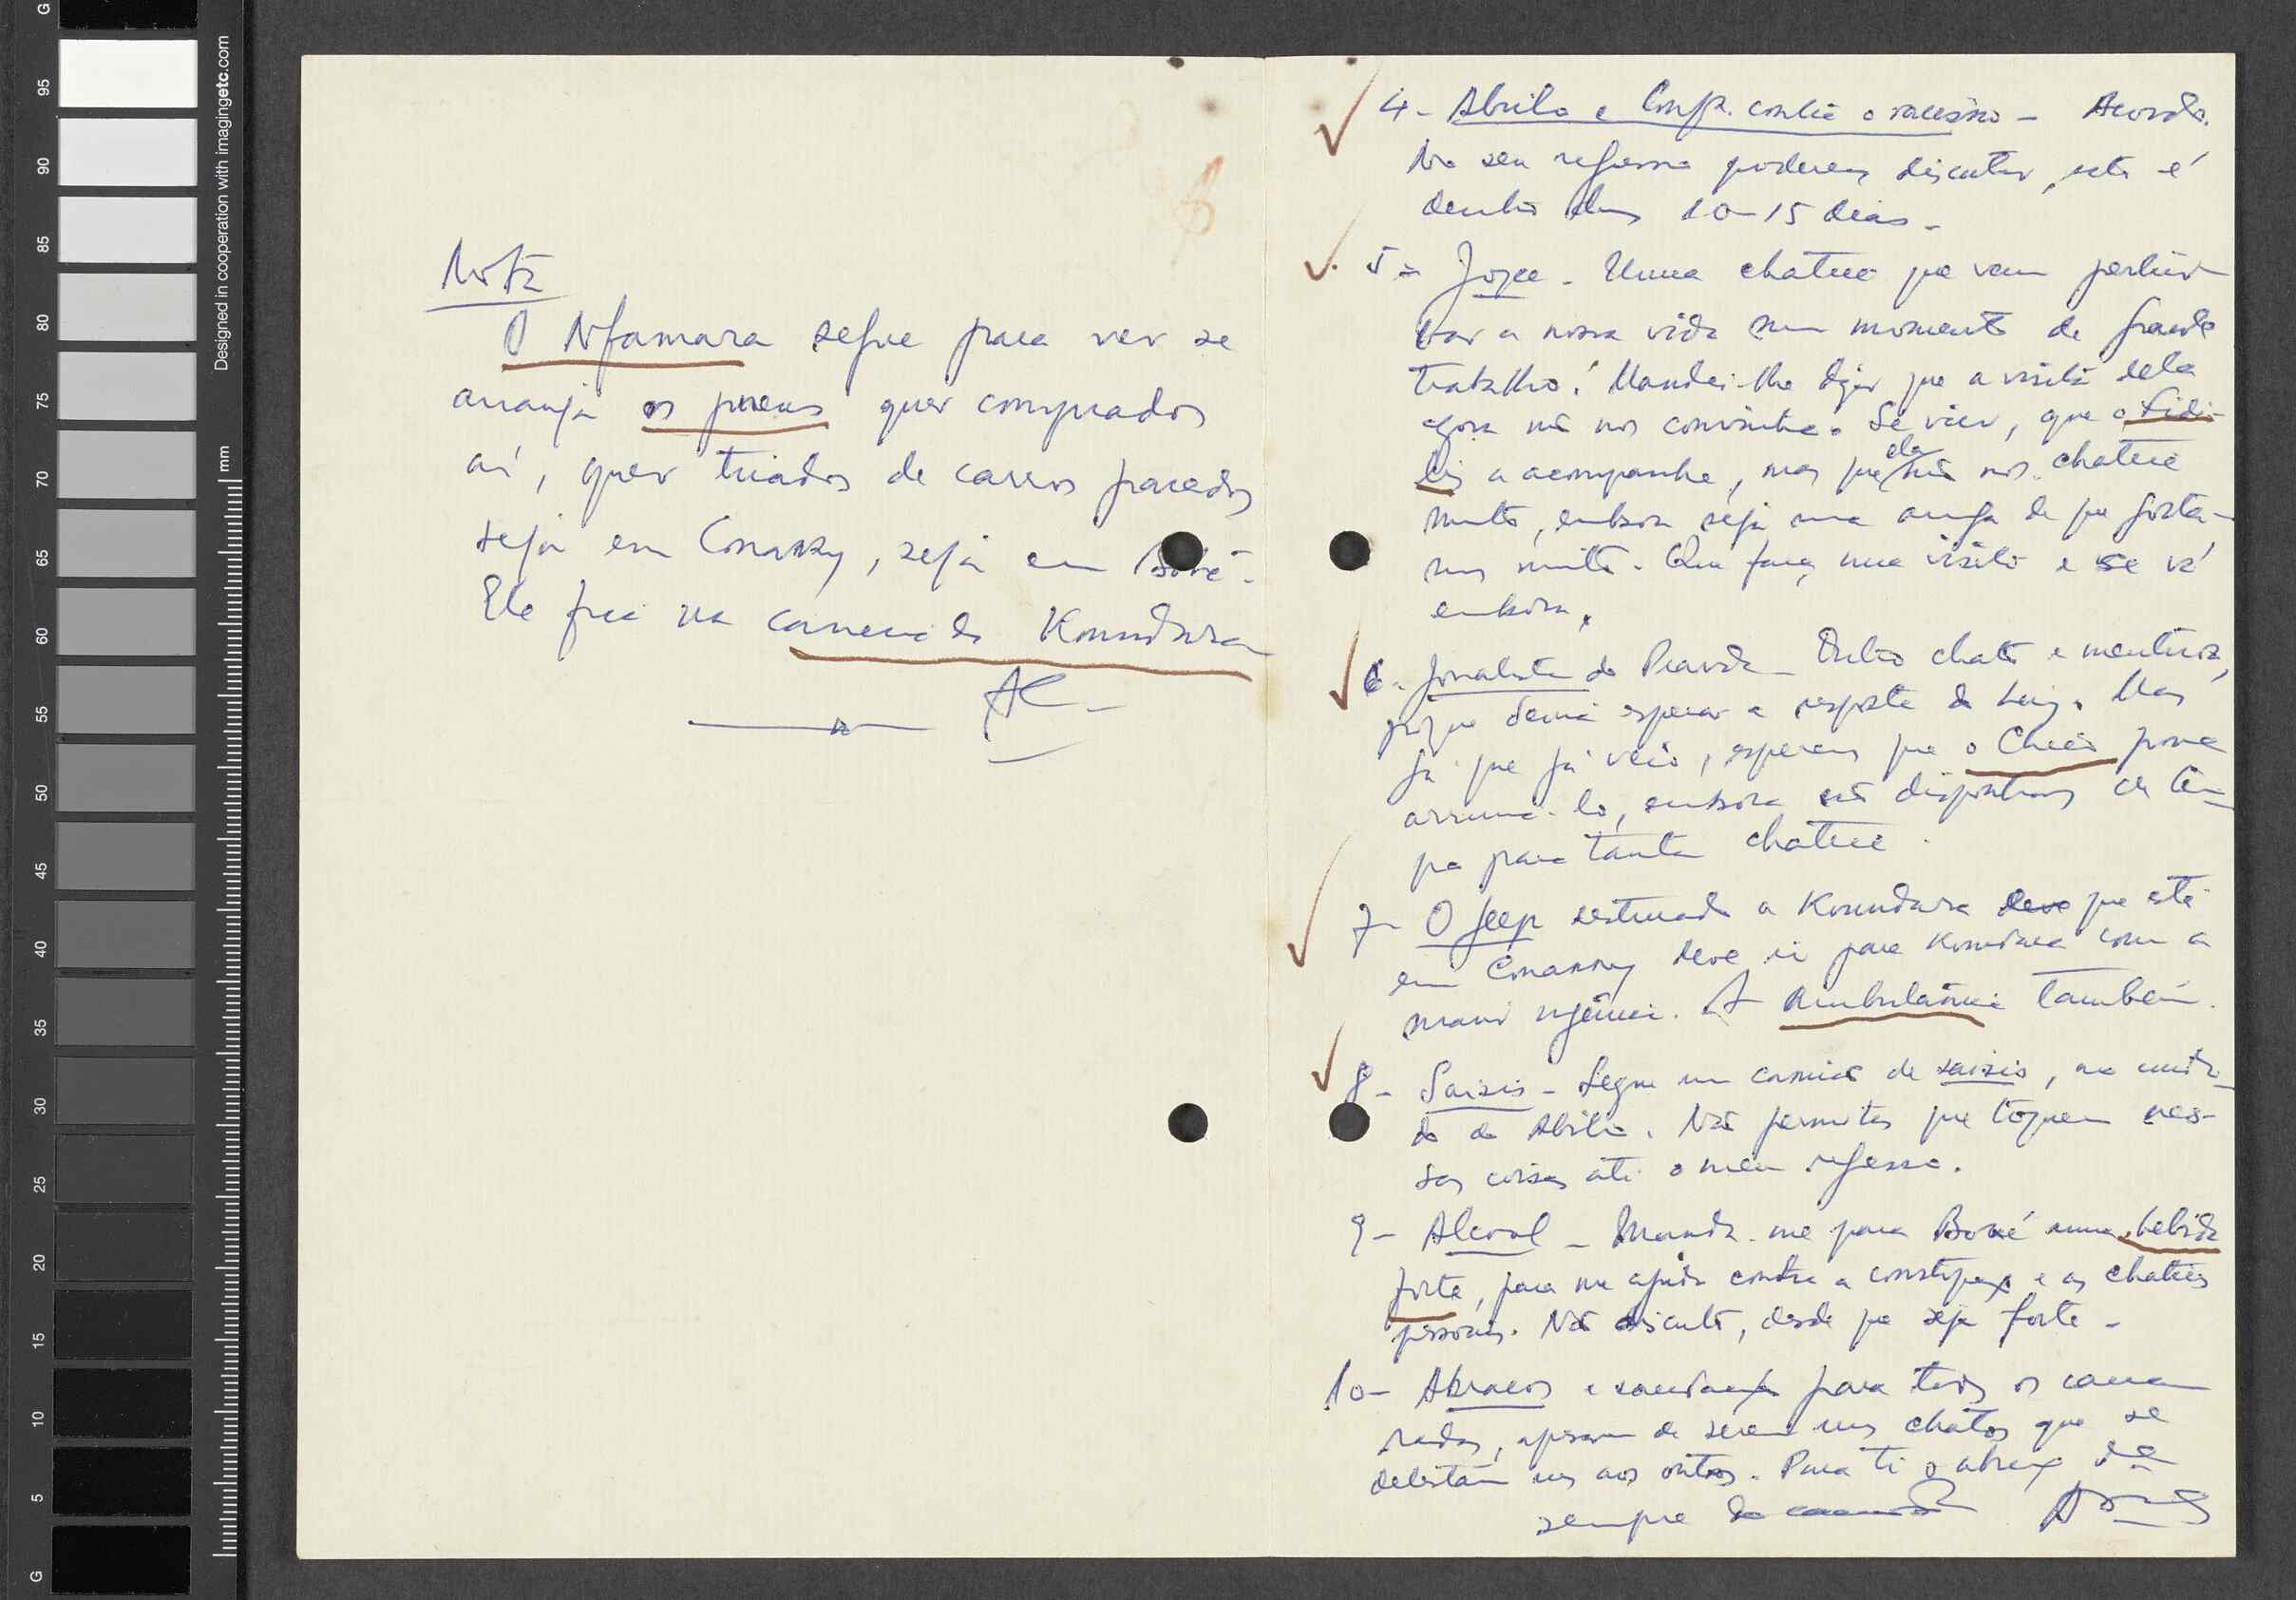 Nota
O Nfamara segue para ver se
arranja os pneus quer comprados
aí, quer tirados de carros parados
seja em Conakry, seja em Boké.
Ele fica na camionete do Koundara
AC
4 - Abílio e Conf. contra o racismo - Acordo.
No seu regresso poderemos discutir, isto é
dentro duns 10-15 dias -
5 - Joyce - Uma chatice que vem pertur-
bar a nossa vida num momento de grande
trabalho! Mandei-lhe dizer que a visita dela
agora não nos convinha. Se vier, que o Fidé-
lis a acompanhe, mas que ela não nos chateie
muito, embora seja uma amiga de que gosta-
mos muito. Que faça uma visita e se vá
embora.
6 - Jornalista do Pravda - Outro chato e mentiroso,
porque devia esperar a resposta do Luiz. Mas
já que já veio, esperemos que o Chico possa
arrumá-lo, embora não disponhamos de tem-
po para tanta chatice.
7 - O Jeep destinado a Koundara deve que está
em Conakry deve ir para Koundara com a
maior urgência. A ambulância também.
8 - Saisis - Segue um camião de saisis, ao cuida-
do do Abílio. Não permitas que toquem nes-
sas coisas até o meu regresso.
9 - Álcool - Manda-me para Boké uma bebida
forte, para me ajudar contra a constipação e as chatices
pessoais. Não discuto, desde que seja forte -
10 - Abraços e saudações para todos os cama-
radas, apesar de serem uns chatos que se
detestam uns aos outros. Para ti o abraço de
sempre do camarada